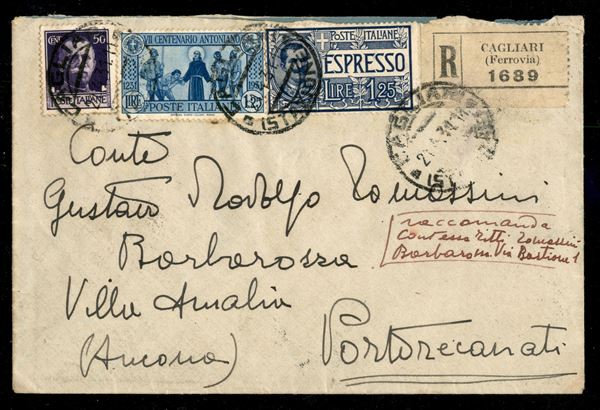 CENT 50
POSTE ITALIANE
VII CENTENARIO ANTONIANO
1231
POSTE ITALIANE
LIRE 1.25
POSTE ITALIANE
ESPRESSO
LIRE 1,25
R
CAGLIARI
(Ferrovia)
1689
Conte
Gustavo Rodolfo Tomassini
Barbarossa
Villa Amalia
(Ancona)
Portorecanati
raccomanda
Contessa Titti Tomassini
Barbarossa Via Bastione 1